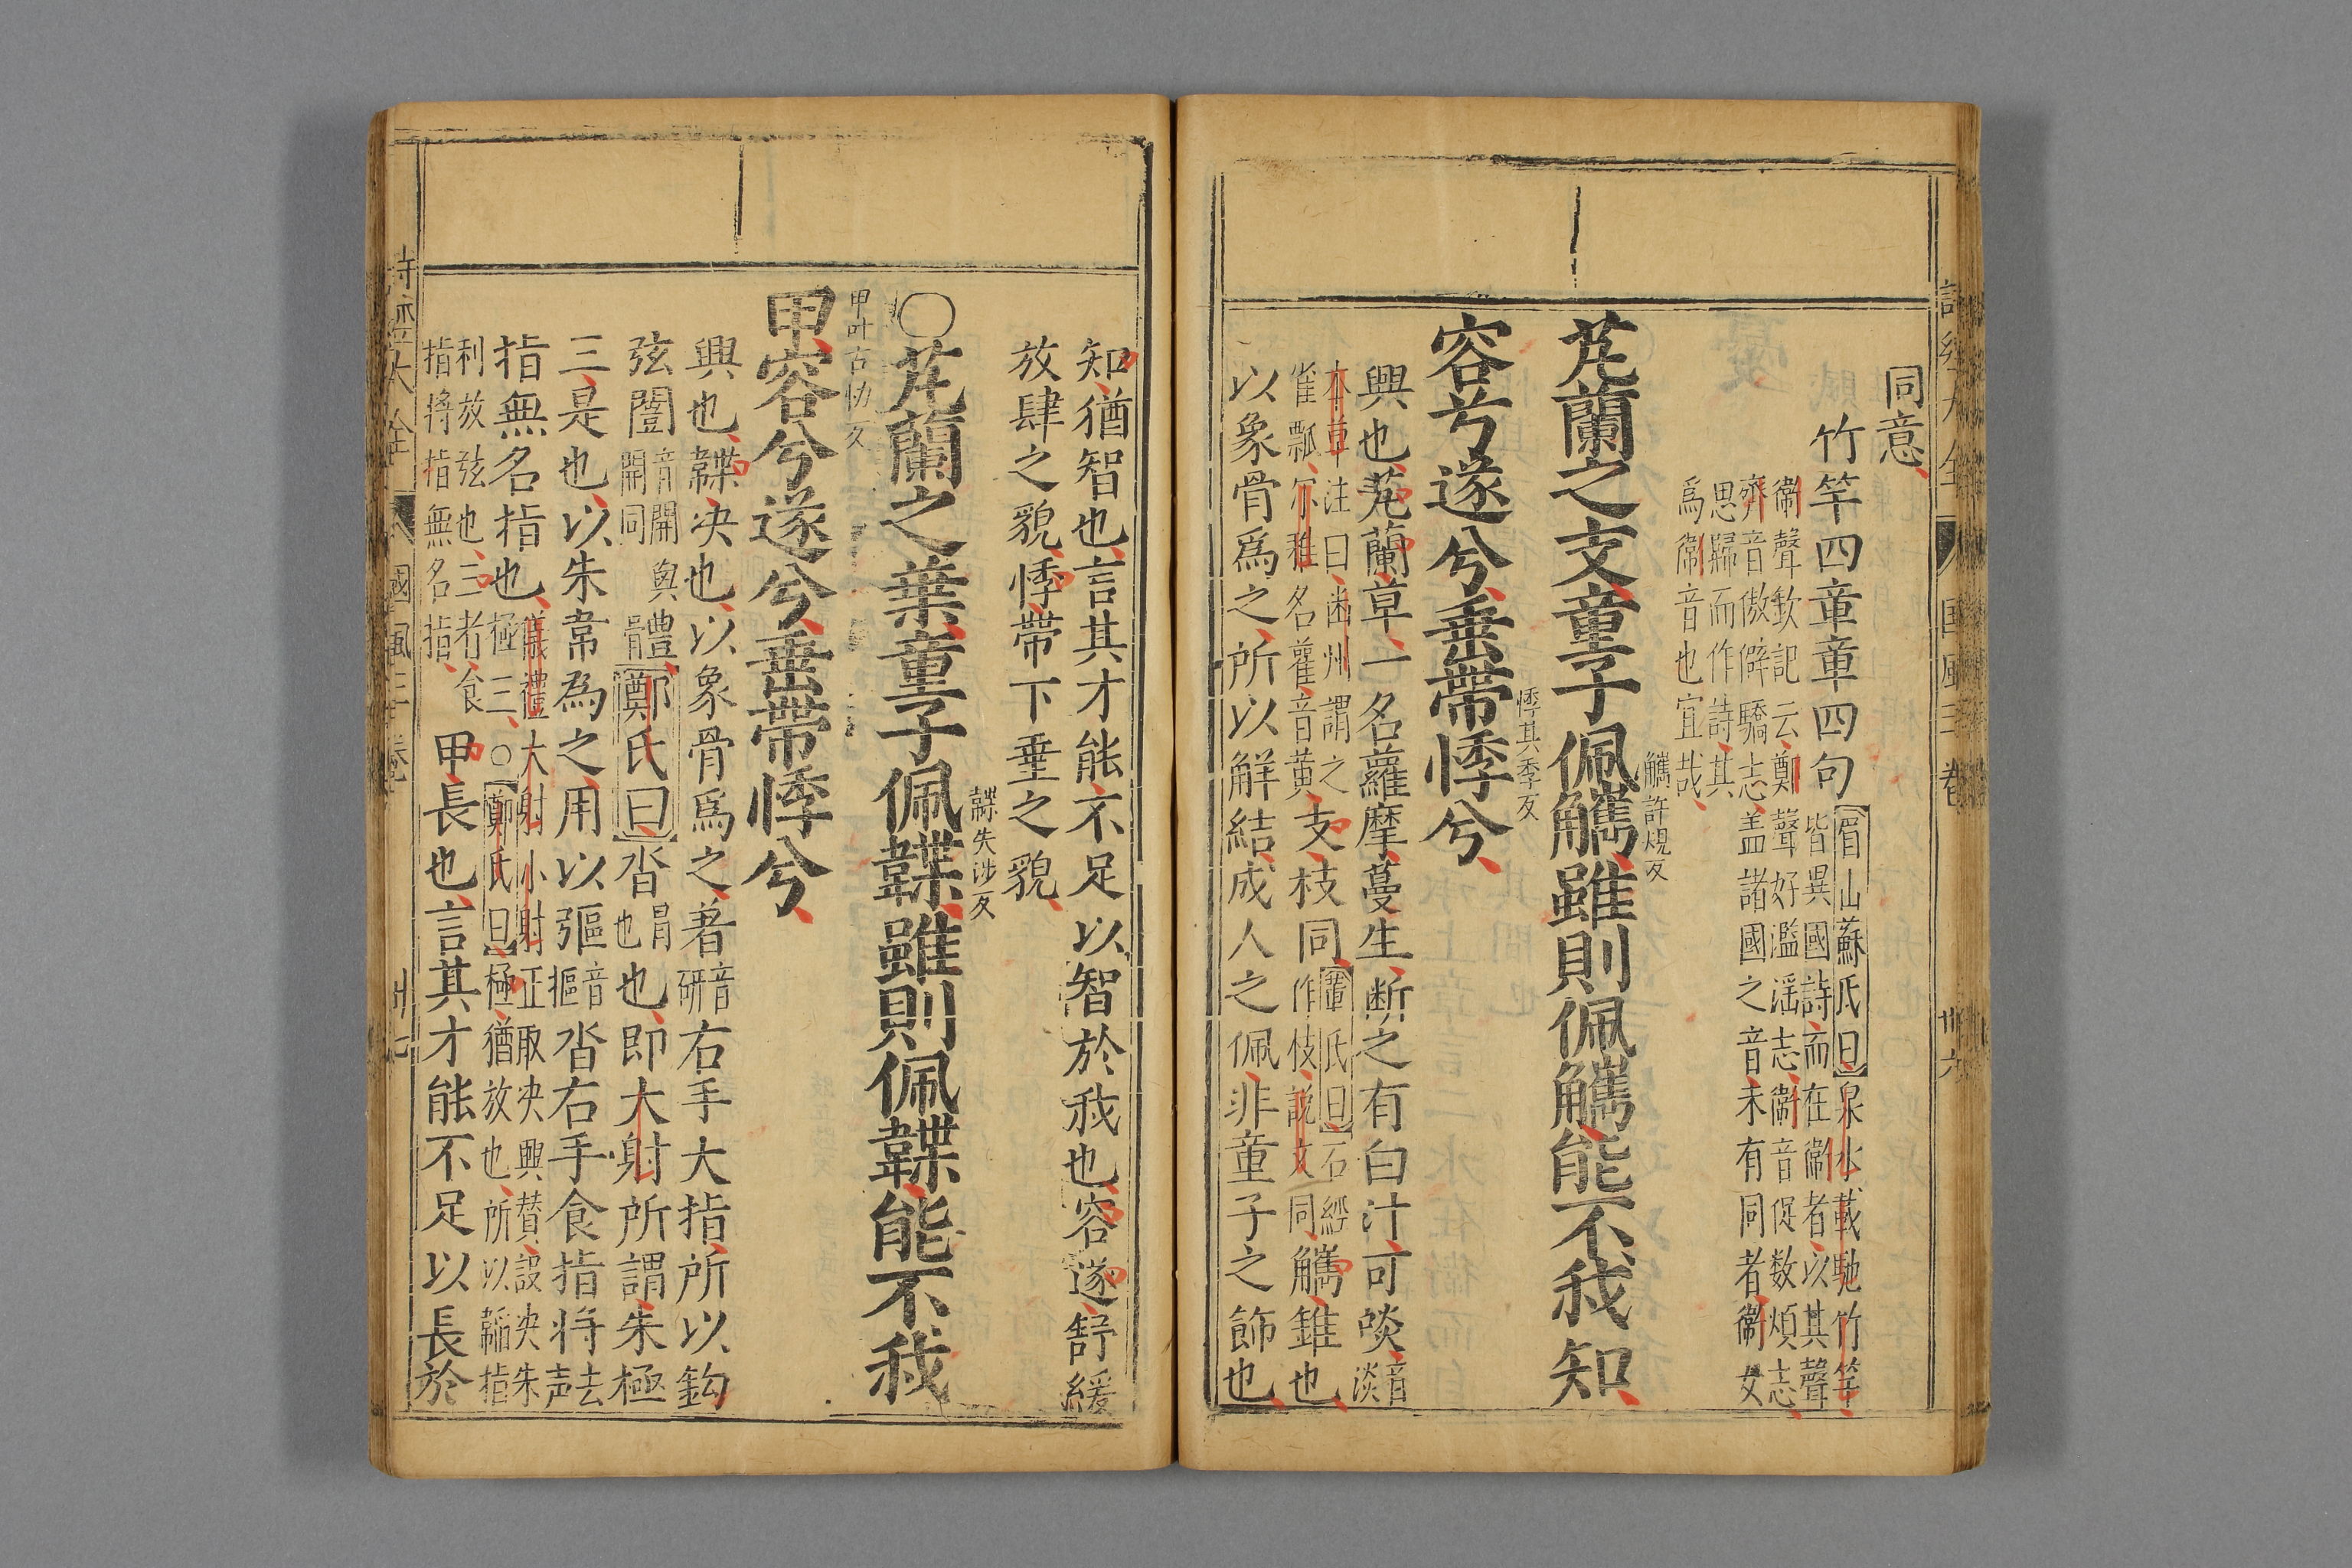 詩經大全 國風三卷 卅六
同意
竹竿四章章四句
眉山蘇氏曰泉水載馳竹竿
皆異國詩而在衛者以其聲
衛聲歟記云鄭聲好濫淫志衛音促数煩志
齊音傲僻驕志盖諸國之音未有同者衛女
思歸而作詩其
爲衛音也宜哉
觿許規反
芄蘭之支童子佩觿雖則佩觿能不我知
悸其季反
容兮遂兮垂帶悸兮
興也芄蘭草一名蘿摩蔓生断之有白汁可啖音淡
本草注曰幽州謂之
雀瓢尔雅名雚音黄
支枝同
董氏曰石經
作枝説文同
觿錐也
以象骨爲之所以解結成人之佩非童子之飾也
知猶智也言其才能不足以智於我也容遂舒緩
放肆之貌悸帶下垂之貌
韘失涉反
○芄蘭之葉童子佩韘雖則佩韘能不我
甲叶古协反
甲容兮遂兮垂帶悸兮
興也韘决也以象骨爲之著音研右手大指所以鈎
弦闓音開與體開同體鄭氏曰沓冐也也即大射所謂朱極
三是也以朱韋為之用以彄音摳沓右手食指将去声
指無名指也
儀禮大射小射正取决興賛設决朱
極三○鄭氏曰極猶放也所以韜指
利放弦也三者食
指将指無名指
甲長也言其才能不足以長於
詩經大全 國風三卷 卅七